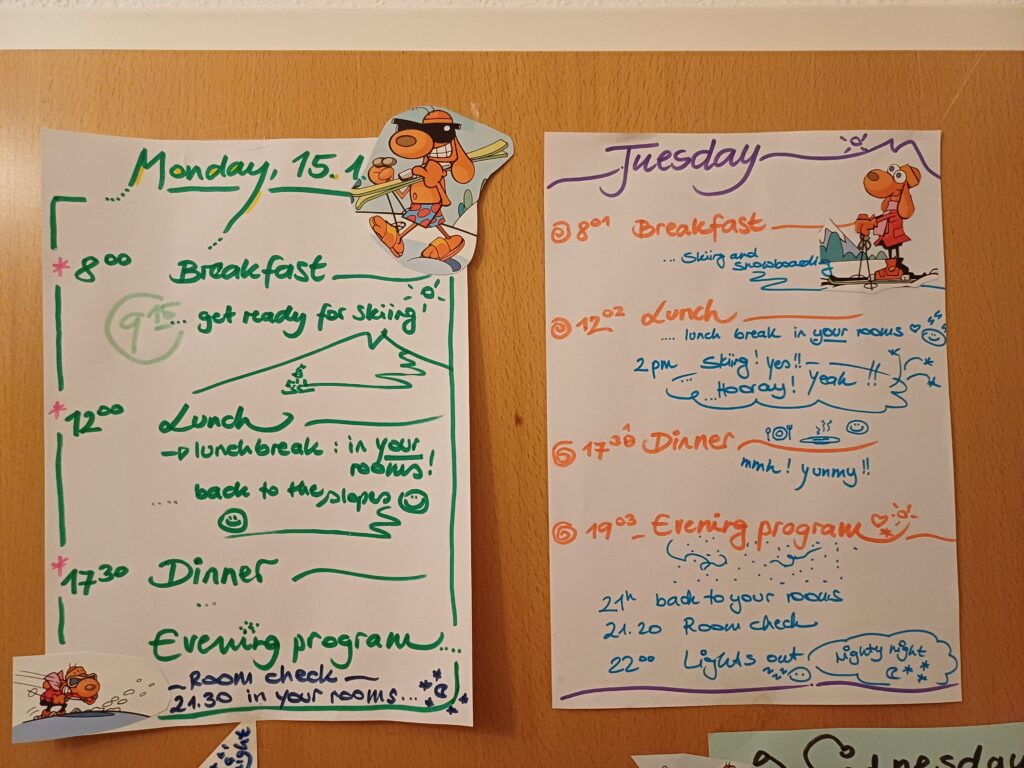 Monday, 15.1.
* 8⁰⁰ Breakfast
9¹⁵ ... get ready for skiing!
* 12⁰⁰ Lunch
→ lunchbreak : in your
rooms!
.... back to the slopes
* 17³⁰ Dinner
...
Evening program....
- Room check -
21.30 in your rooms...
night
Tuesday
8⁰¹ Breakfast
... Skiing and
snowboarding
12⁰² Lunch
.... lunch break in your rooms
2pm Skiing! yes!!
...Hooray! Yeah !!
Dinner
mmh! yummy!!
19⁰³ Evening program
21ʰ back to your rooms
21.20 Room check
22⁰⁰ Lights out
zzz
Nighty night